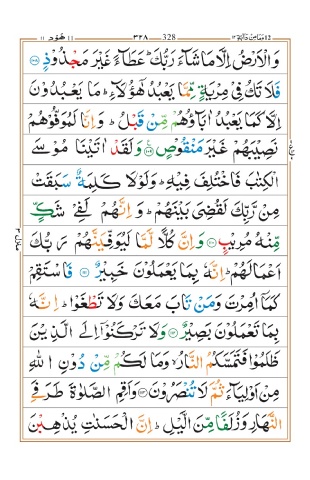 هُوْد ١١ ٣٢٨ 328 وَمَا مِنْ دَآبَّةٍ ١٢
وَالْاَرْضُ اِلَّا مَا شَآءَ رَبُّكَ ؕ عَطَآءً غَيْرَ مَجْذُوْذٍ ﴿١٠٨﴾
فَلَا تَكُ فِيْ مِرْيَةٍ مِّمَّا يَعْبُدُ هٰٓؤُلَآءِ ؕ مَا يَعْبُدُوْنَ
اِلَّا كَمَا يَعْبُدُ اٰبَآؤُهُمْ مِّنْ قَبْلُ ؕ وَاِنَّا لَمُوَفُّوْهُمْ
نَصِيْبَهُمْ غَيْرَ مَنْقُوْصٍ ﴿١٠٩﴾ وَلَقَدْ اٰتَيْنَا مُوْسَى
الْكِتٰبَ فَاخْتُلِفَ فِيْهِ ؕ وَلَوْلَا كَلِمَةٌ سَبَقَتْ
مِنْ رَّبِّكَ لَقُضِيَ بَيْنَهُمْ ؕ وَاِنَّهُمْ لَفِيْ شَكٍّ
مِّنْهُ مُرِيْبٍ ﴿١١٠﴾ وَاِنَّ كُلًّا لَّمَّا لَيُوَفِّيَنَّهُمْ رَبُّكَ
اَعْمَالَهُمْ ؕ اِنَّهٗ بِمَا يَعْمَلُوْنَ خَبِيْرٌ ﴿١١١﴾ فَاسْتَقِمْ
كَمَآ اُمِرْتَ وَمَنْ تَابَ مَعَكَ وَلَا تَطْغَوْا ؕ اِنَّهٗ
بِمَا تَعْمَلُوْنَ بَصِيْرٌ ﴿١١٢﴾ وَلَا تَرْكَنُوْٓا اِلَى الَّذِيْنَ
ظَلَمُوْا فَتَمَسَّكُمُ النَّارُ ۙ وَمَا لَكُمْ مِّنْ دُوْنِ اللّٰهِ
مِنْ اَوْلِيَآءَ ثُمَّ لَا تُنْصَرُوْنَ ﴿١١٣﴾ وَاَقِمِ الصَّلٰوةَ طَرَفَيِ
النَّهَارِ وَزُلَفًا مِّنَ الَّيْلِ ؕ اِنَّ الْحَسَنٰتِ يُذْهِبْنَ